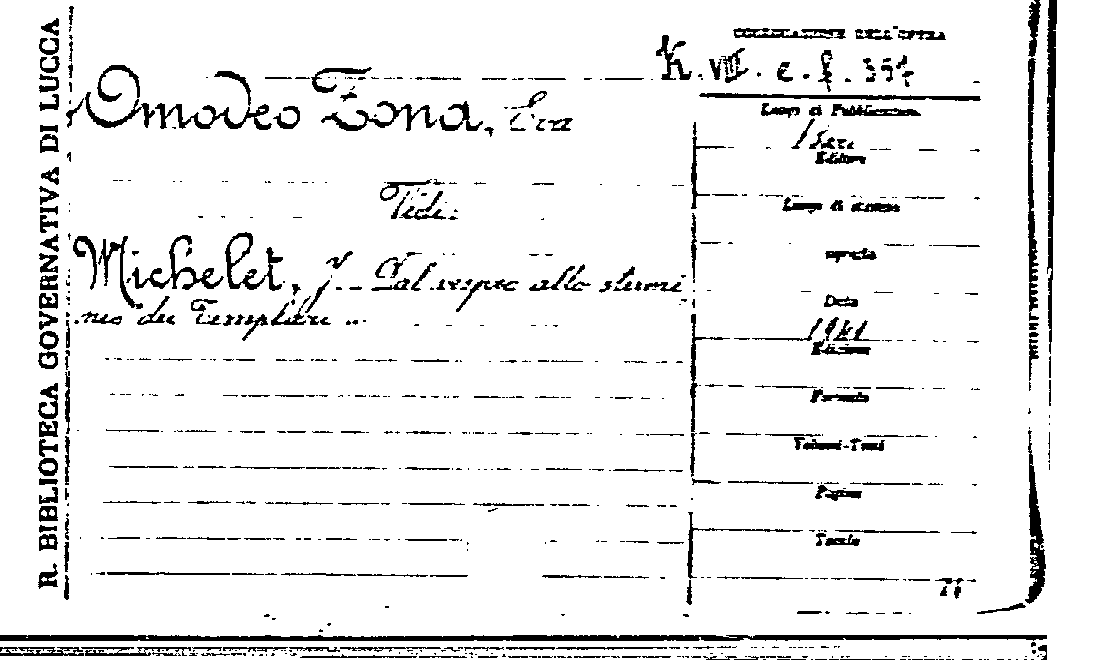 R. BIBLIOTECA GOVERNATIVA DI LUCCA
COLLOCAZIONE DELL'OPERA
K. VIII. e. f. 357
Omodeo Zona, Eva
Vedi:
Michelet, J. - Dal vespro allo stermi
nio dei Templari ...
Luogo di Pubblicazione
Bari
Editore
Luogo di stampa
Data
Edizione
Formato
Volumi-Tomi
Pagine
Tavole